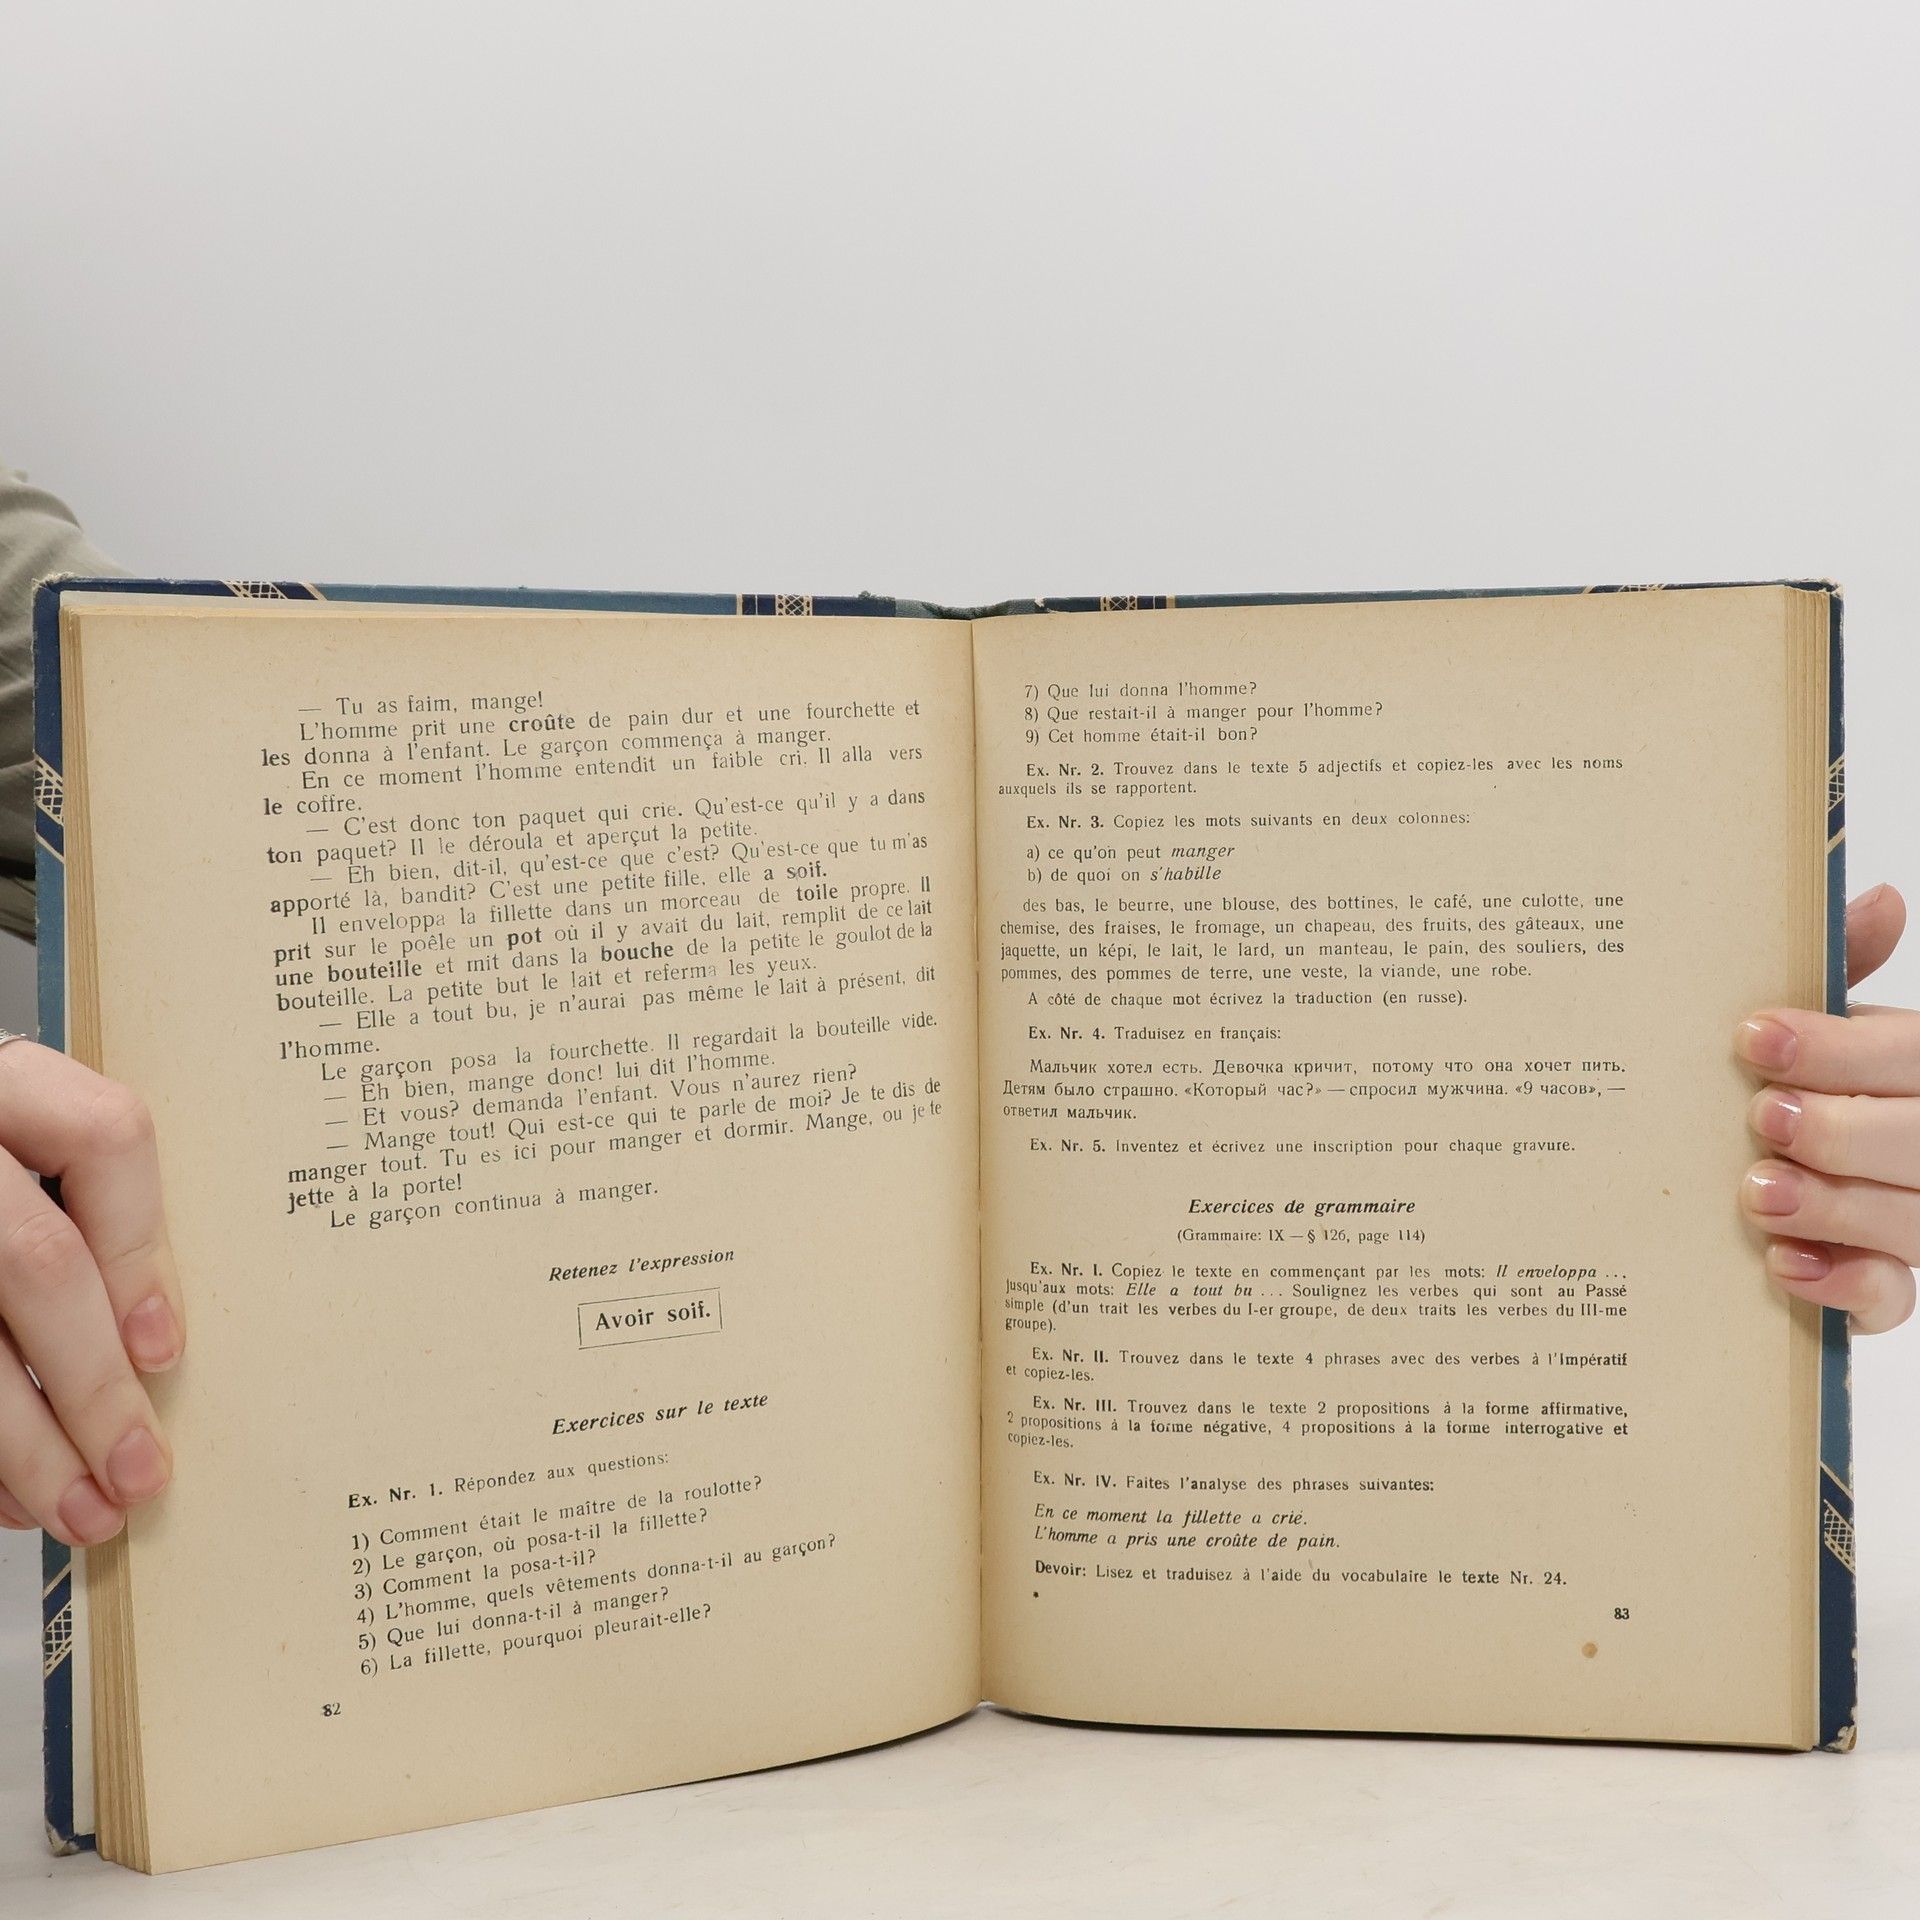 — Tu as faim, mange!
L'homme prit une croûte de pain dur et une fourchette et
les donna à l'enfant. Le garçon commença à manger.
En ce moment l'homme entendit un faible cri. Il alla vers
le coffre.
— C'est donc ton paquet qui crie. Qu'est-ce qu'il y a dans
ton paquet? Il le déroula et aperçut la petite.
— Eh bien, dit-il, qu'est-ce que c'est? Qu'est-ce que tu m'as
apporté là, bandit? C'est une petite fille, elle a soif.
Il enveloppa la fillette dans un morceau de toile propre. Il
prit sur le poêle un pot où il y avait du lait, remplit de ce lait
une bouteille et mit dans la bouche de la petite le goulot de la
bouteille. La petite but le lait et referma les yeux.
— Elle a tout bu, je n'aurai pas même le lait à présent, dit
l'homme.
Le garçon posa la fourchette. Il regardait la bouteille vide.
— Eh bien, mange donc! lui dit l'homme.
— Et vous? demanda l'enfant. Vous n'aurez rien?
— Mange tout! Qui est-ce qui te parle de moi? Je te dis de
manger tout. Tu es ici pour manger et dormir. Mange, ou je te
jette à la porte!
Le garçon continua à manger.
Retenez l'expression
Avoir soif.
Exercices sur le texte
Ex. Nr. 1. Répondez aux questions:
1) Comment était le maître de la roulotte?
2) Le garçon, où posa-t-il la fillette?
3) Comment la posa-t-il?
4) L'homme, quels vêtements donna-t-il au garçon?
5) Que lui donna-t-il à manger?
6) La fillette, pourquoi pleurait-elle?
82
7) Que lui donna l'homme?
8) Que restait-il à manger pour l'homme?
9) Cet homme était-il bon?
Ex. Nr. 2. Trouvez dans le texte 5 adjectifs et copiez-les avec les noms
auxquels ils se rapportent.
Ex. Nr. 3. Copiez les mots suivants en deux colonnes:
a) ce qu'on peut manger
b) de quoi on s'habille
des bas, le beurre, une blouse, des bottines, le café, une culotte, une
chemise, des fraises, le fromage, un chapeau, des fruits, des gâteaux, une
jaquette, un képi, le lait, le lard, un manteau, le pain, des souliers, des
pommes, des pommes de terre, une veste, la viande, une robe.
A côté de chaque mot écrivez la traduction (en russe).
Ex. Nr. 4. Traduisez en français:
Мальчик хотел есть. Девочка кричит, потому что она хочет пить.
Детям было страшно. «Который час?» — спросил мужчина. «9 часов», —
ответил мальчик.
Ex. Nr. 5. Inventez et écrivez une inscription pour chaque gravure.
Exercices de grammaire
(Grammaire: IX — § 126, page 114)
Ex. Nr. I. Copiez le texte en commençant par les mots: Il enveloppa ...
jusqu'aux mots: Elle a tout bu ... Soulignez les verbes qui sont au Passé
simple (d'un trait les verbes du I-er groupe, de deux traits les verbes du III-me
groupe).
Ex. Nr. II. Trouvez dans le texte 4 phrases avec des verbes à l'Impératif
et copiez-les.
Ex. Nr. III. Trouvez dans le texte 2 propositions à la forme affirmative,
2 propositions à la forme négative, 4 propositions à la forme interrogative et
copiez-les.
Ex. Nr. IV. Faites l'analyse des phrases suivantes:
En ce moment la fillette a crié.
L'homme a pris une croûte de pain.
Devoir: Lisez et traduisez à l'aide du vocabulaire le texte Nr. 24.
*
83